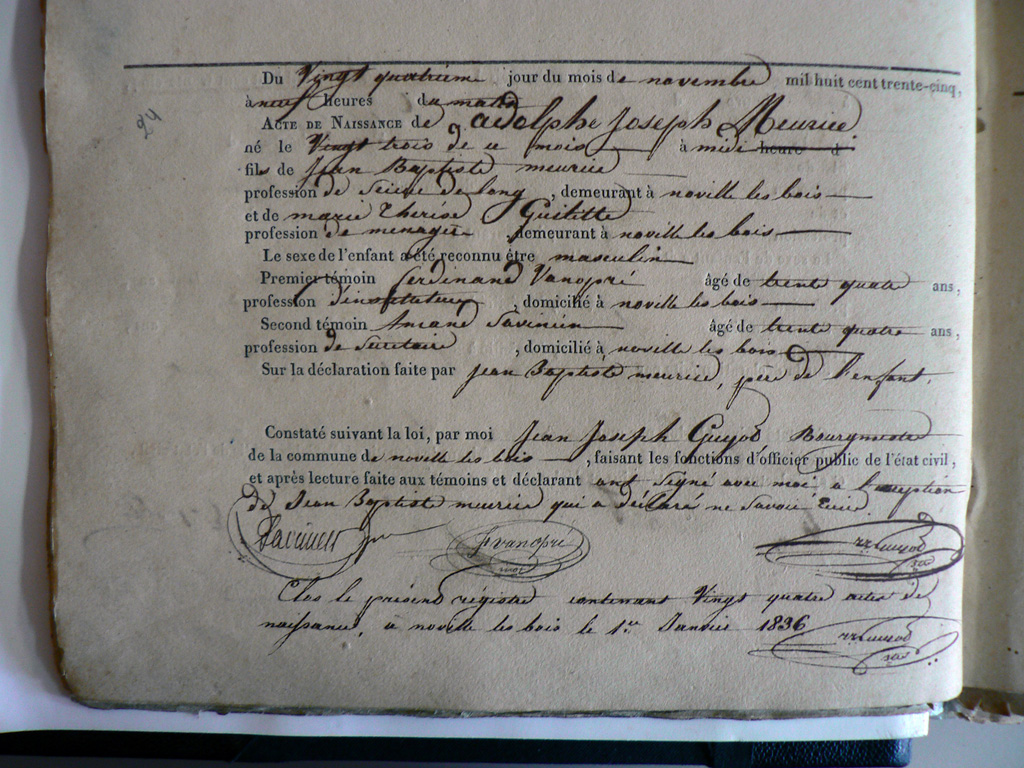 Du Vingt quatrième jour du mois de novembre mil huit cent trente-cinq,
à neuf heures du matin
24
ACTE DE NAISSANCE de adolphe Joseph Meurice
né le Vingt trois de ce mois à midi heure d
fils de Jean Baptiste meurice
profession de Scieur de long, demeurant à noville les bois
et de marie Therise Guilitte
profession de menagere demeurant à noville les bois
Le sexe de l'enfant a été reconnu être masculin
Premier témoin Ferdinand Vanopré âgé de trente quatre ans,
profession d'instituteur, domicilié à noville les bois
Second témoin Amand Savinien âgé de trente quatre ans,
profession de Secretaire, domicilié à noville les bois
Sur la déclaration faite par Jean Baptiste meurice, père de l'enfant.
Constaté suivant la loi, par moi Jean Joseph Guyod Bourgmestre
de la commune de noville les bois, faisant les fonctions d'officier public de l'état civil,
et après lecture faite aux témoins et déclarant ont Signé avec moi a l'exception
de Jean Baptiste meurice qui a déclaré ne Savoir Ecrire.
Fvanopré
Clos le présent régistre contenant Vingt quatre actes de
naissance, a noville les bois le 1er Janvier 1836